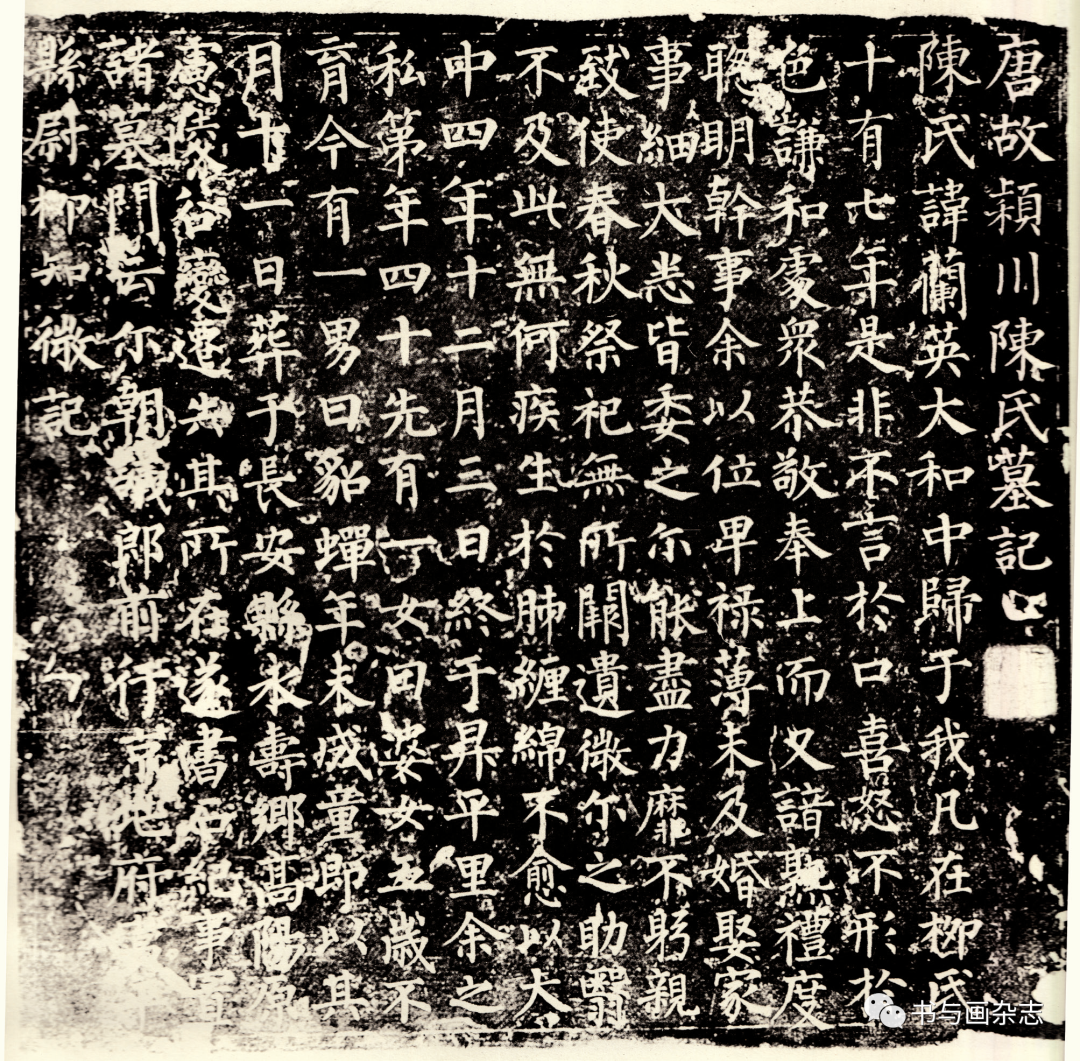 唐故潁川陳氏墓記
陳氏諱蘭英大和中歸于我凡在柳氏
十有七年是非不言於口喜怒不形於
色謙和處衆恭敬奉上而又諳熟禮度
聦明幹事余以位卑祿薄未及婚娶家
事細大悉皆委之尔能盡力靡不躬親
致使春秋祭祀無所闕遺微尔之助翳
不及此無何疾生於肺纏綿不愈以大
中四年十二月三日終于昇平里余之
私第年四十先有一女曰婆女五歲不
育今有一男曰貂蟬年未成童即以其
月十一日葬于長安縣永壽鄉高陽原
慮陵谷變遷失其所在遂書石紀事置
諸墓門云尔朝議郎前行京兆府
縣尉柳知微記
书与画杂志